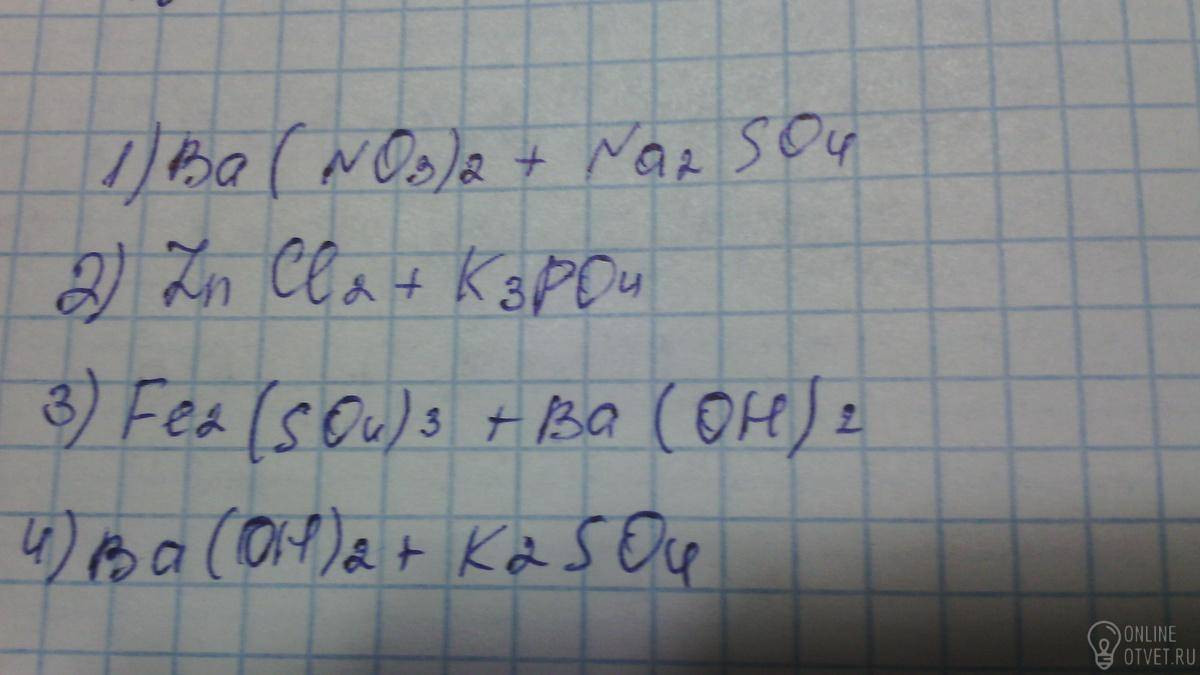 1) Ba(NO3)2 + Na2SO4
2) ZnCl2 + K3PO4
3) Fe2(SO4)3 + Ba(OH)2
4) Ba(OH)2 + K2SO4
ONLINE
OTVET.RU